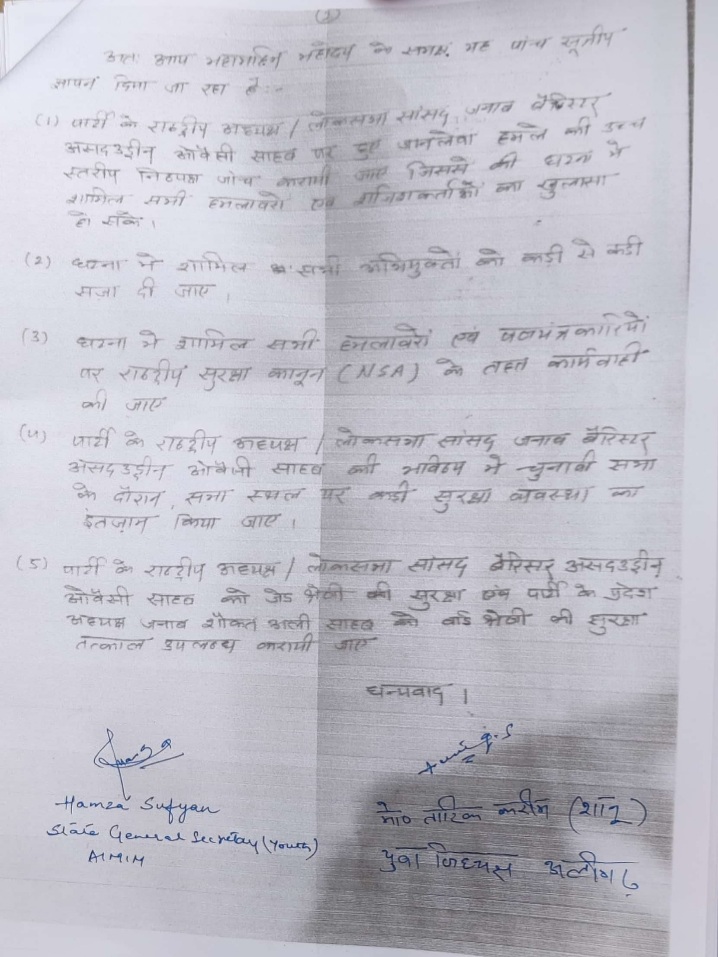 (2)
अतः आप महामहिम महोदय के समक्ष यह पांच सूत्रीय
ज्ञापन दिया जा रहा है:-
(1) पार्टी के राष्ट्रीय अध्यक्ष / लोकसभा सांसद जनाब बैरिस्टर
असदउद्दीन ओवैसी साहब पर हुए जानलेवा हमले की उच्च
स्तरीय निष्पक्ष जांच करायी जाए जिससे की घटना में
शामिल सभी हमलावरों एवं साजिशकर्ताओं का खुलासा
हो सके।
(2) घटना में शामिल सभी अभियुक्तों को कड़ी से कड़ी
सजा दी जाए।
(3) घटना में शामिल सभी हमलावरों एवं षडयंत्रकारियों
पर राष्ट्रीय सुरक्षा कानून (NSA) के तहत कार्यवाही
की जाए
(4) पार्टी के राष्ट्रीय अध्यक्ष / लोकसभा सांसद जनाब बैरिस्टर
असदउद्दीन ओवैसी साहब की भविष्य में चुनावी सभा
के दौरान सभा स्थल पर कड़ी सुरक्षा व्यवस्था का
इंतज़ाम किया जाए।
(5) पार्टी के राष्ट्रीय अध्यक्ष / लोकसभा सांसद बैरिस्टर असदउद्दीन
ओवैसी साहब को जेड श्रेणी की सुरक्षा एवं पार्टी के प्रदेश
अध्यक्ष जनाब शौकत अली साहब को वाई श्रेणी की सुरक्षा
तत्काल उपलब्ध करायी जाए
धन्यवाद।
Hamza Sufyan
State General Secretay (Youth)
AIMIM
मो० तारिक करीम (शानू)
युवा जिध्यक्ष अलीगढ़